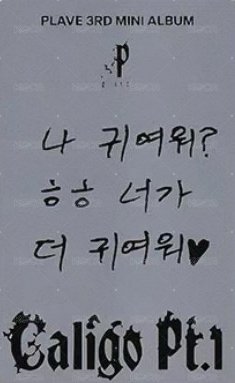 PLAVE 3RD MINI ALBUM
P
나 귀여워?
ㅎㅎ 너가
더 귀여워♥
Caligo Pt.1